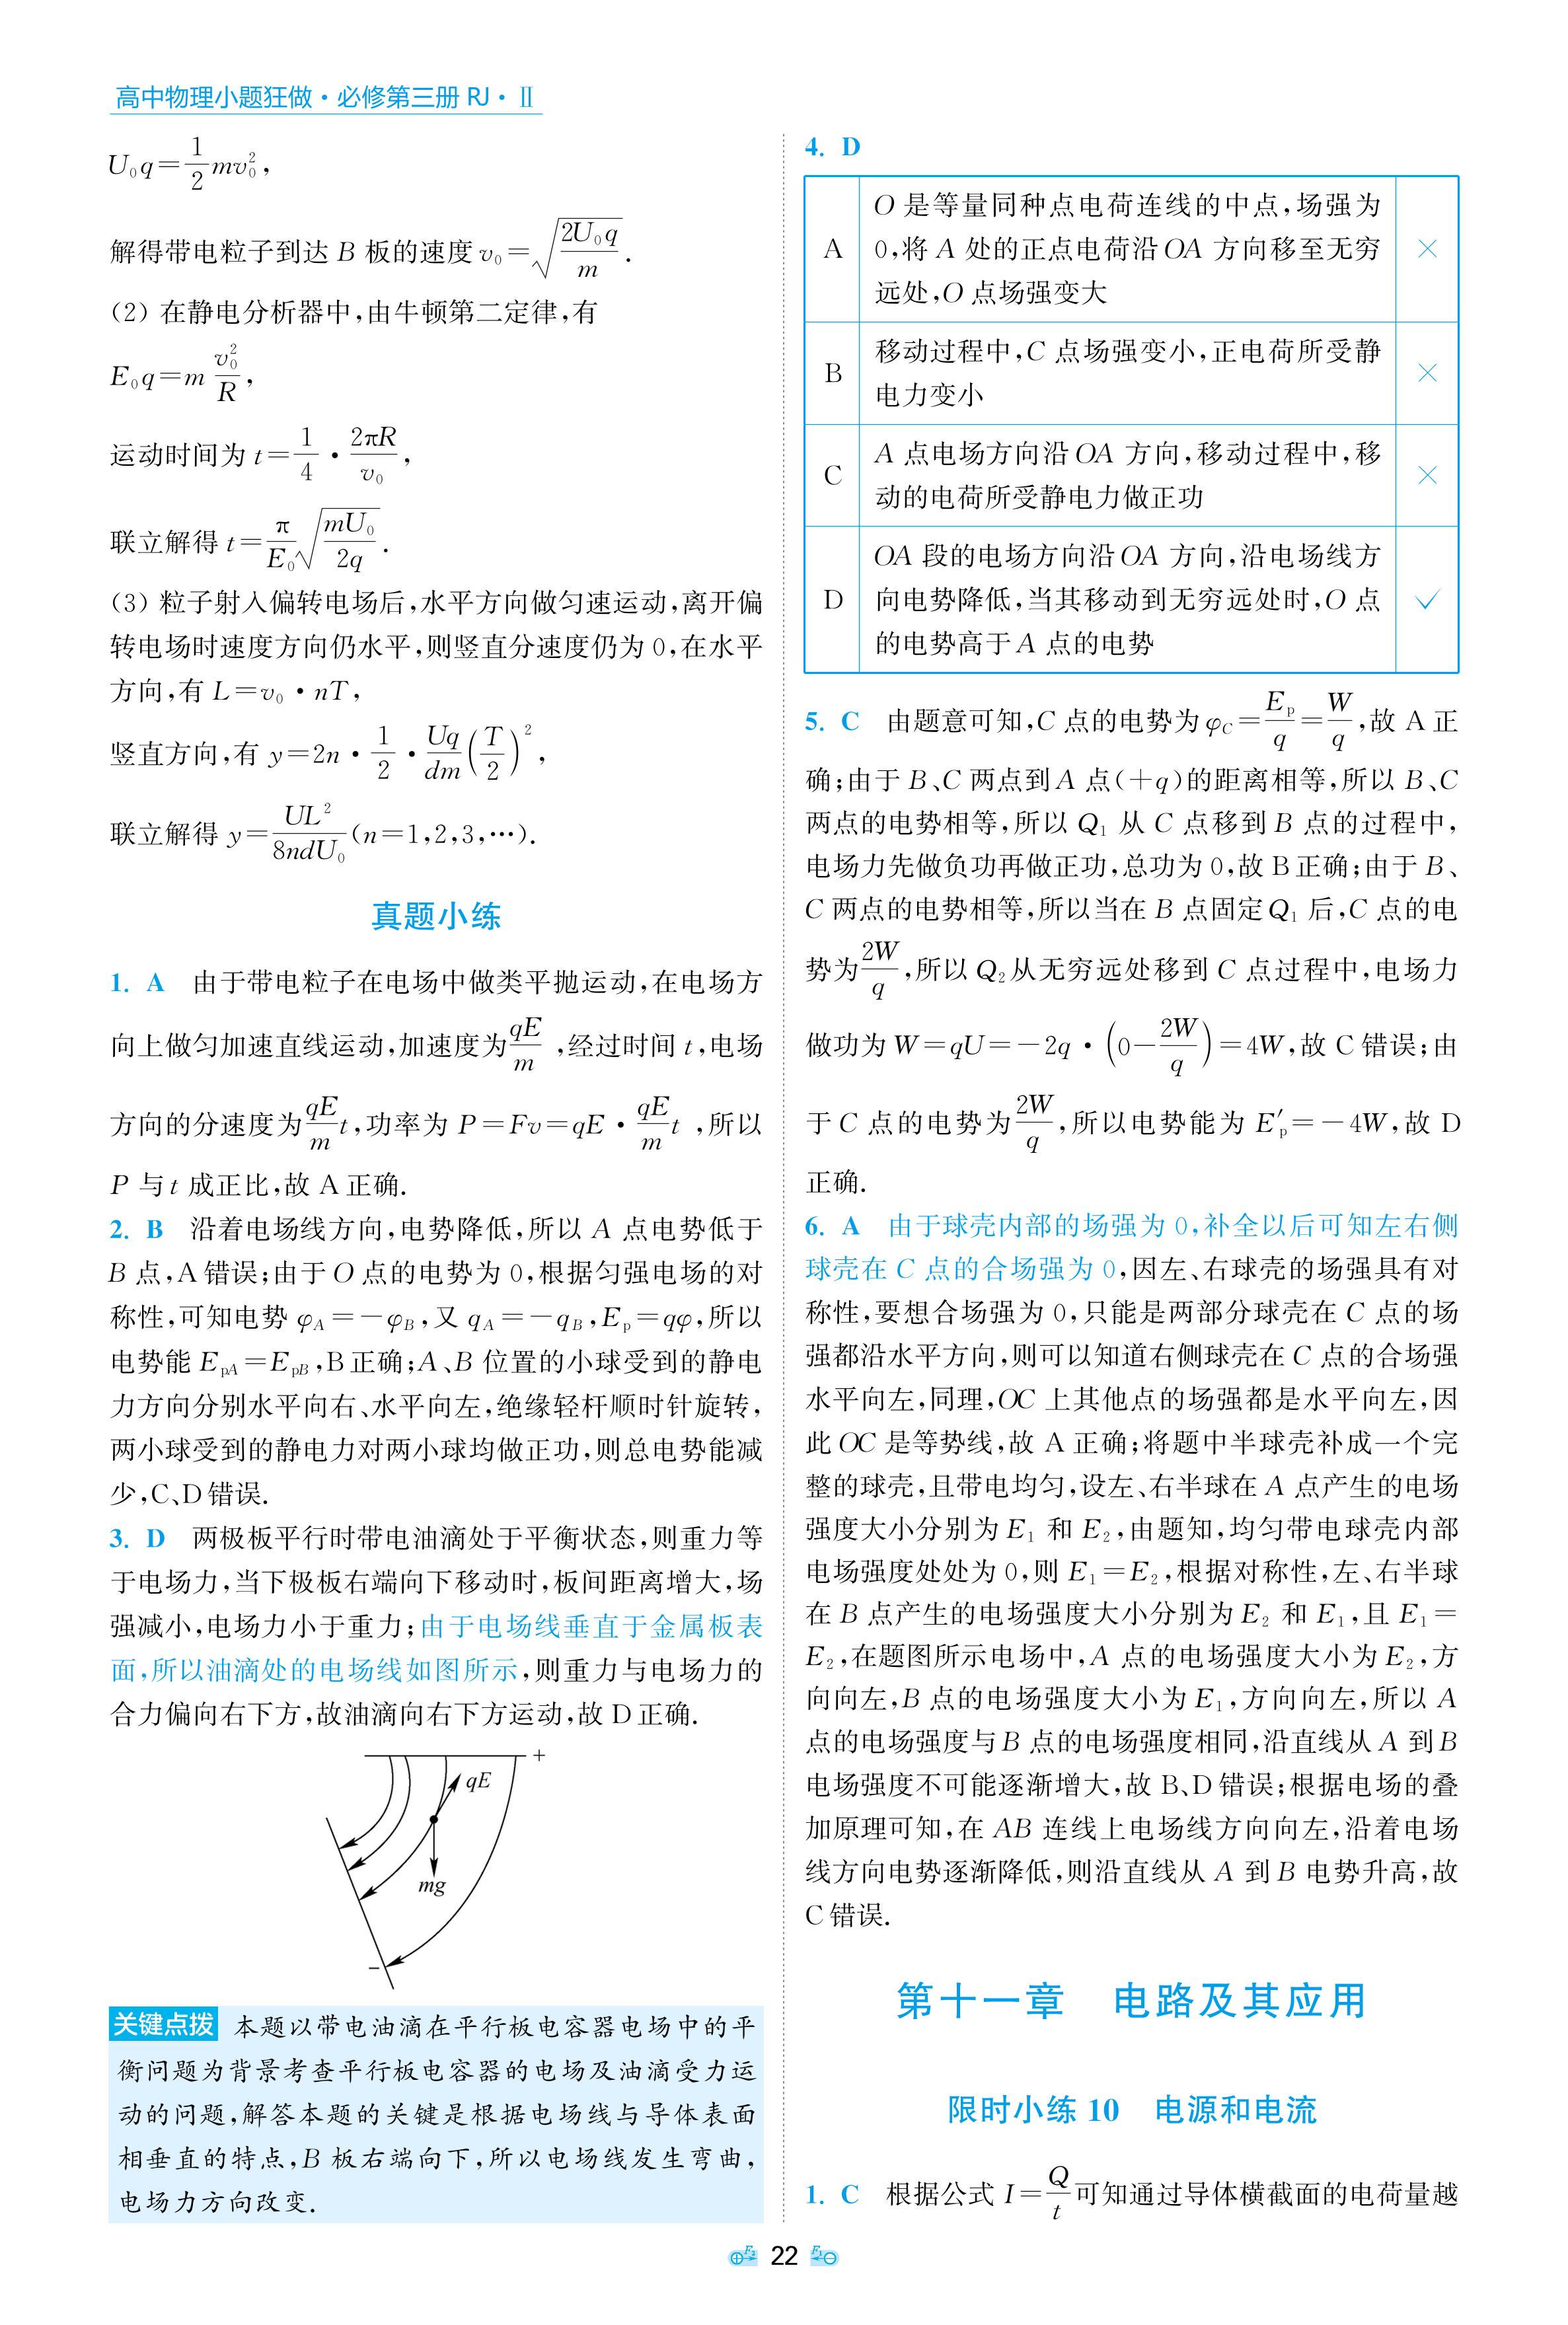 高中物理小题狂做·必修第三册 RJ·Ⅱ
U₀q=\frac{1}{2}mv₀²,
解得带电粒子到达 B 板的速度 v₀=\sqrt{\frac{2U₀q}{m}}.
(2) 在静电分析器中,由牛顿第二定律,有
E₀q=m\frac{v₀²}{R},
运动时间为 t=\frac{1}{4}·\frac{2πR}{v₀},
联立解得 t=\frac{π}{E₀}\sqrt{\frac{mU₀}{2q}}.
(3) 粒子射入偏转电场后,水平方向做匀速运动,离开偏
转电场时速度方向仍水平,则竖直分速度仍为 0,在水平
方向,有 L=v₀·nT,
竖直方向,有 y=2n·\frac{1}{2}·\frac{Uq}{dm}(\frac{T}{2})²,
联立解得 y=\frac{UL²}{8ndU₀}(n=1,2,3,…).
真题小练
1. A 由于带电粒子在电场中做类平抛运动,在电场方
向上做匀加速直线运动,加速度为\frac{qE}{m},经过时间 t,电场
方向的分速度为\frac{qE}{m}t,功率为 P=Fv=qE·\frac{qE}{m}t,所以
P 与 t 成正比,故 A 正确.
2. B 沿着电场线方向,电势降低,所以 A 点电势低于
B 点,A 错误;由于 O 点的电势为 0,根据匀强电场的对
称性,可知电势 φ_A=-φ_B,又 q_A=-q_B,E_p=qφ,所以
电势能 E_{pA}=E_{pB},B 正确;A、B 位置的小球受到的静电
力方向分别水平向右、水平向左,绝缘轻杆顺时针旋转,
两小球受到的静电力对两小球均做正功,则总电势能减
少,C、D 错误.
3. D 两极板平行时带电油滴处于平衡状态,则重力等
于电场力,当下极板右端向下移动时,板间距离增大,场
强减小,电场力小于重力;由于电场线垂直于金属板表
面,所以油滴处的电场线如图所示,则重力与电场力的
合力偏向右下方,故油滴向右下方运动,故 D 正确.
+
qE
mg
−
关键点拨 本题以带电油滴在平行板电容器电场中的平
衡问题为背景考查平行板电容器的电场及油滴受力运
动的问题,解答本题的关键是根据电场线与导体表面
相垂直的特点,B 板右端向下,所以电场线发生弯曲,
电场力方向改变.
4. D
A O 是等量同种点电荷连线的中点,场强为
0,将 A 处的正点电荷沿 OA 方向移至无穷 ×
远处,O 点场强变大
B 移动过程中,C 点场强变小,正电荷所受静 ×
电力变小
C A 点电场方向沿 OA 方向,移动过程中,移 ×
动的电荷所受静电力做正功
D OA 段的电场方向沿 OA 方向,沿电场线方
向电势降低,当其移动到无穷远处时,O 点 ✓
的电势高于 A 点的电势
5. C 由题意可知,C 点的电势为 φ_C=\frac{E_p}{q}=\frac{W}{q},故 A 正
确;由于 B、C 两点到 A 点(+q)的距离相等,所以 B、C
两点的电势相等,所以 Q₁ 从 C 点移到 B 点的过程中,
电场力先做负功再做正功,总功为 0,故 B 正确;由于 B、
C 两点的电势相等,所以当在 B 点固定 Q₁ 后,C 点的电
势为\frac{2W}{q},所以 Q₂从无穷远处移到 C 点过程中,电场力
做功为 W=qU=-2q·(0-\frac{2W}{q})=4W,故 C 错误;由
于 C 点的电势为\frac{2W}{q},所以电势能为 E′_p=-4W,故 D
正确.
6. A 由于球壳内部的场强为 0,补全以后可知左右侧
球壳在 C 点的合场强为 0,因左、右球壳的场强具有对
称性,要想合场强为 0,只能是两部分球壳在 C 点的场
强都沿水平方向,则可以知道右侧球壳在 C 点的合场强
水平向左,同理,OC 上其他点的场强都是水平向左,因
此 OC 是等势线,故 A 正确;将题中半球壳补成一个完
整的球壳,且带电均匀,设左、右半球在 A 点产生的电场
强度大小分别为 E₁ 和 E₂,由题知,均匀带电球壳内部
电场强度处处为 0,则 E₁=E₂,根据对称性,左、右半球
在 B 点产生的电场强度大小分别为 E₂ 和 E₁,且 E₁=
E₂,在题图所示电场中,A 点的电场强度大小为 E₂,方
向向左,B 点的电场强度大小为 E₁,方向向左,所以 A
点的电场强度与 B 点的电场强度相同,沿直线从 A 到 B
电场强度不可能逐渐增大,故 B、D 错误;根据电场的叠
加原理可知,在 AB 连线上电场线方向向左,沿着电场
线方向电势逐渐降低,则沿直线从 A 到 B 电势升高,故
C 错误.
第十一章 电路及其应用
限时小练 10 电源和电流
1. C 根据公式 I=\frac{Q}{t}可知通过导体横截面的电荷量越
F₂ 22 F₁